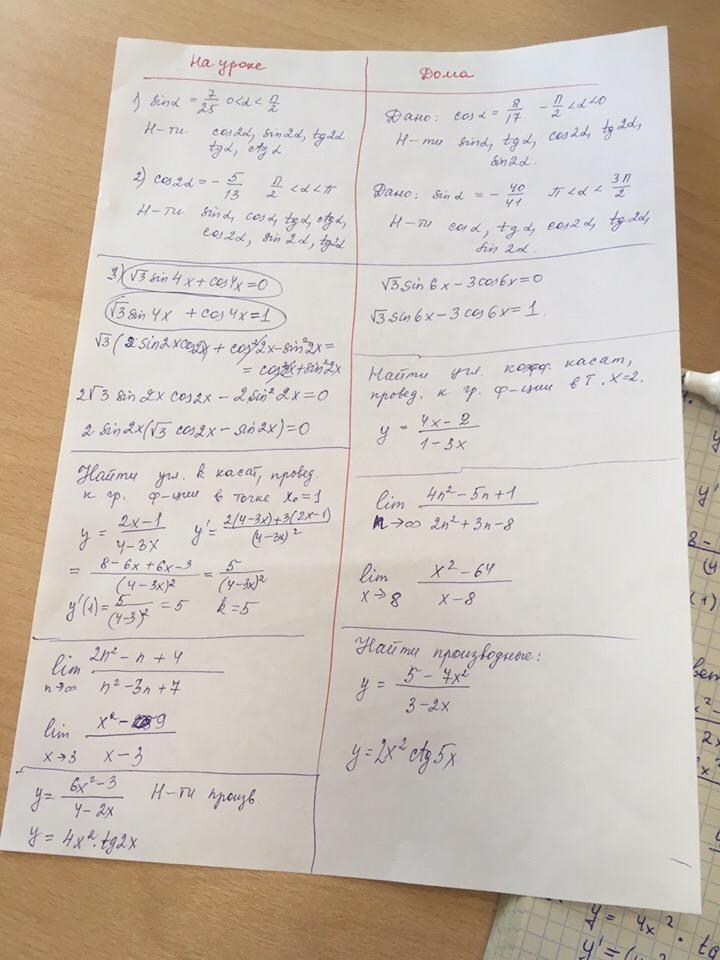 На уроке
1) sinα = 7/25 0<α<π/2
Н-ти cos2α, sin2α, tg2α
tgα, ctgα
2) cos2α = - 5/13 π/2 <α<π
Н-ти sinα, cosα, tgα, ctgα,
cos2α, sin2α, tg2α
3) √3 sin4x + cos4x = 0
√3 sin4x + cos4x = 1
√3 (2sin2xcos2x) + cos²2x - sin²2x =
= cos²2x + sin²2x
2√3 sin2x cos2x - 2sin²2x = 0
2 sin2x(√3 cos2x - sin2x) = 0
Найти угл. k касат, провед.
к гр. ф-ции в точке x₀ = 1
y = 2x-1/4-3x y' = 2(4-3x)+3(2x-1)/(4-3x)²
= 8-6x+6x-3/(4-3x)² = 5/(4-3x)²
y'(1) = 5/(4-3)² = 5 k = 5
lim n→∞ 2n²-n+4/n²-3n+7
lim x→3 x²-9/x-3
y = 6x²-3/4-2x Н-ти произв.
y = 4x²·tg2x
Дома
Дано: cosα = 8/17 -π/2 <α<0
Н-ти sinα, tgα, cos2α, tg2α,
sin2α.
Дано: sinα = - 40/41 π<α< 3π/2
Н-ти cosα, tgα, cos2α, tg2α,
sin2α.
√3 sin6x - 3cos6x = 0
√3 sin6x - 3cos6x = 1.
Найти угл. коэф. касат,
провед. к гр. ф-ции в т. x=2.
y = 4x-2/1-3x
lim n→∞ 4n²-5n+1/2n²+3n-8
lim x→8 x²-64/x-8
Найти производные:
y = 5-7x²/3-2x
y = 2x² ctg5x
y = 4x²·